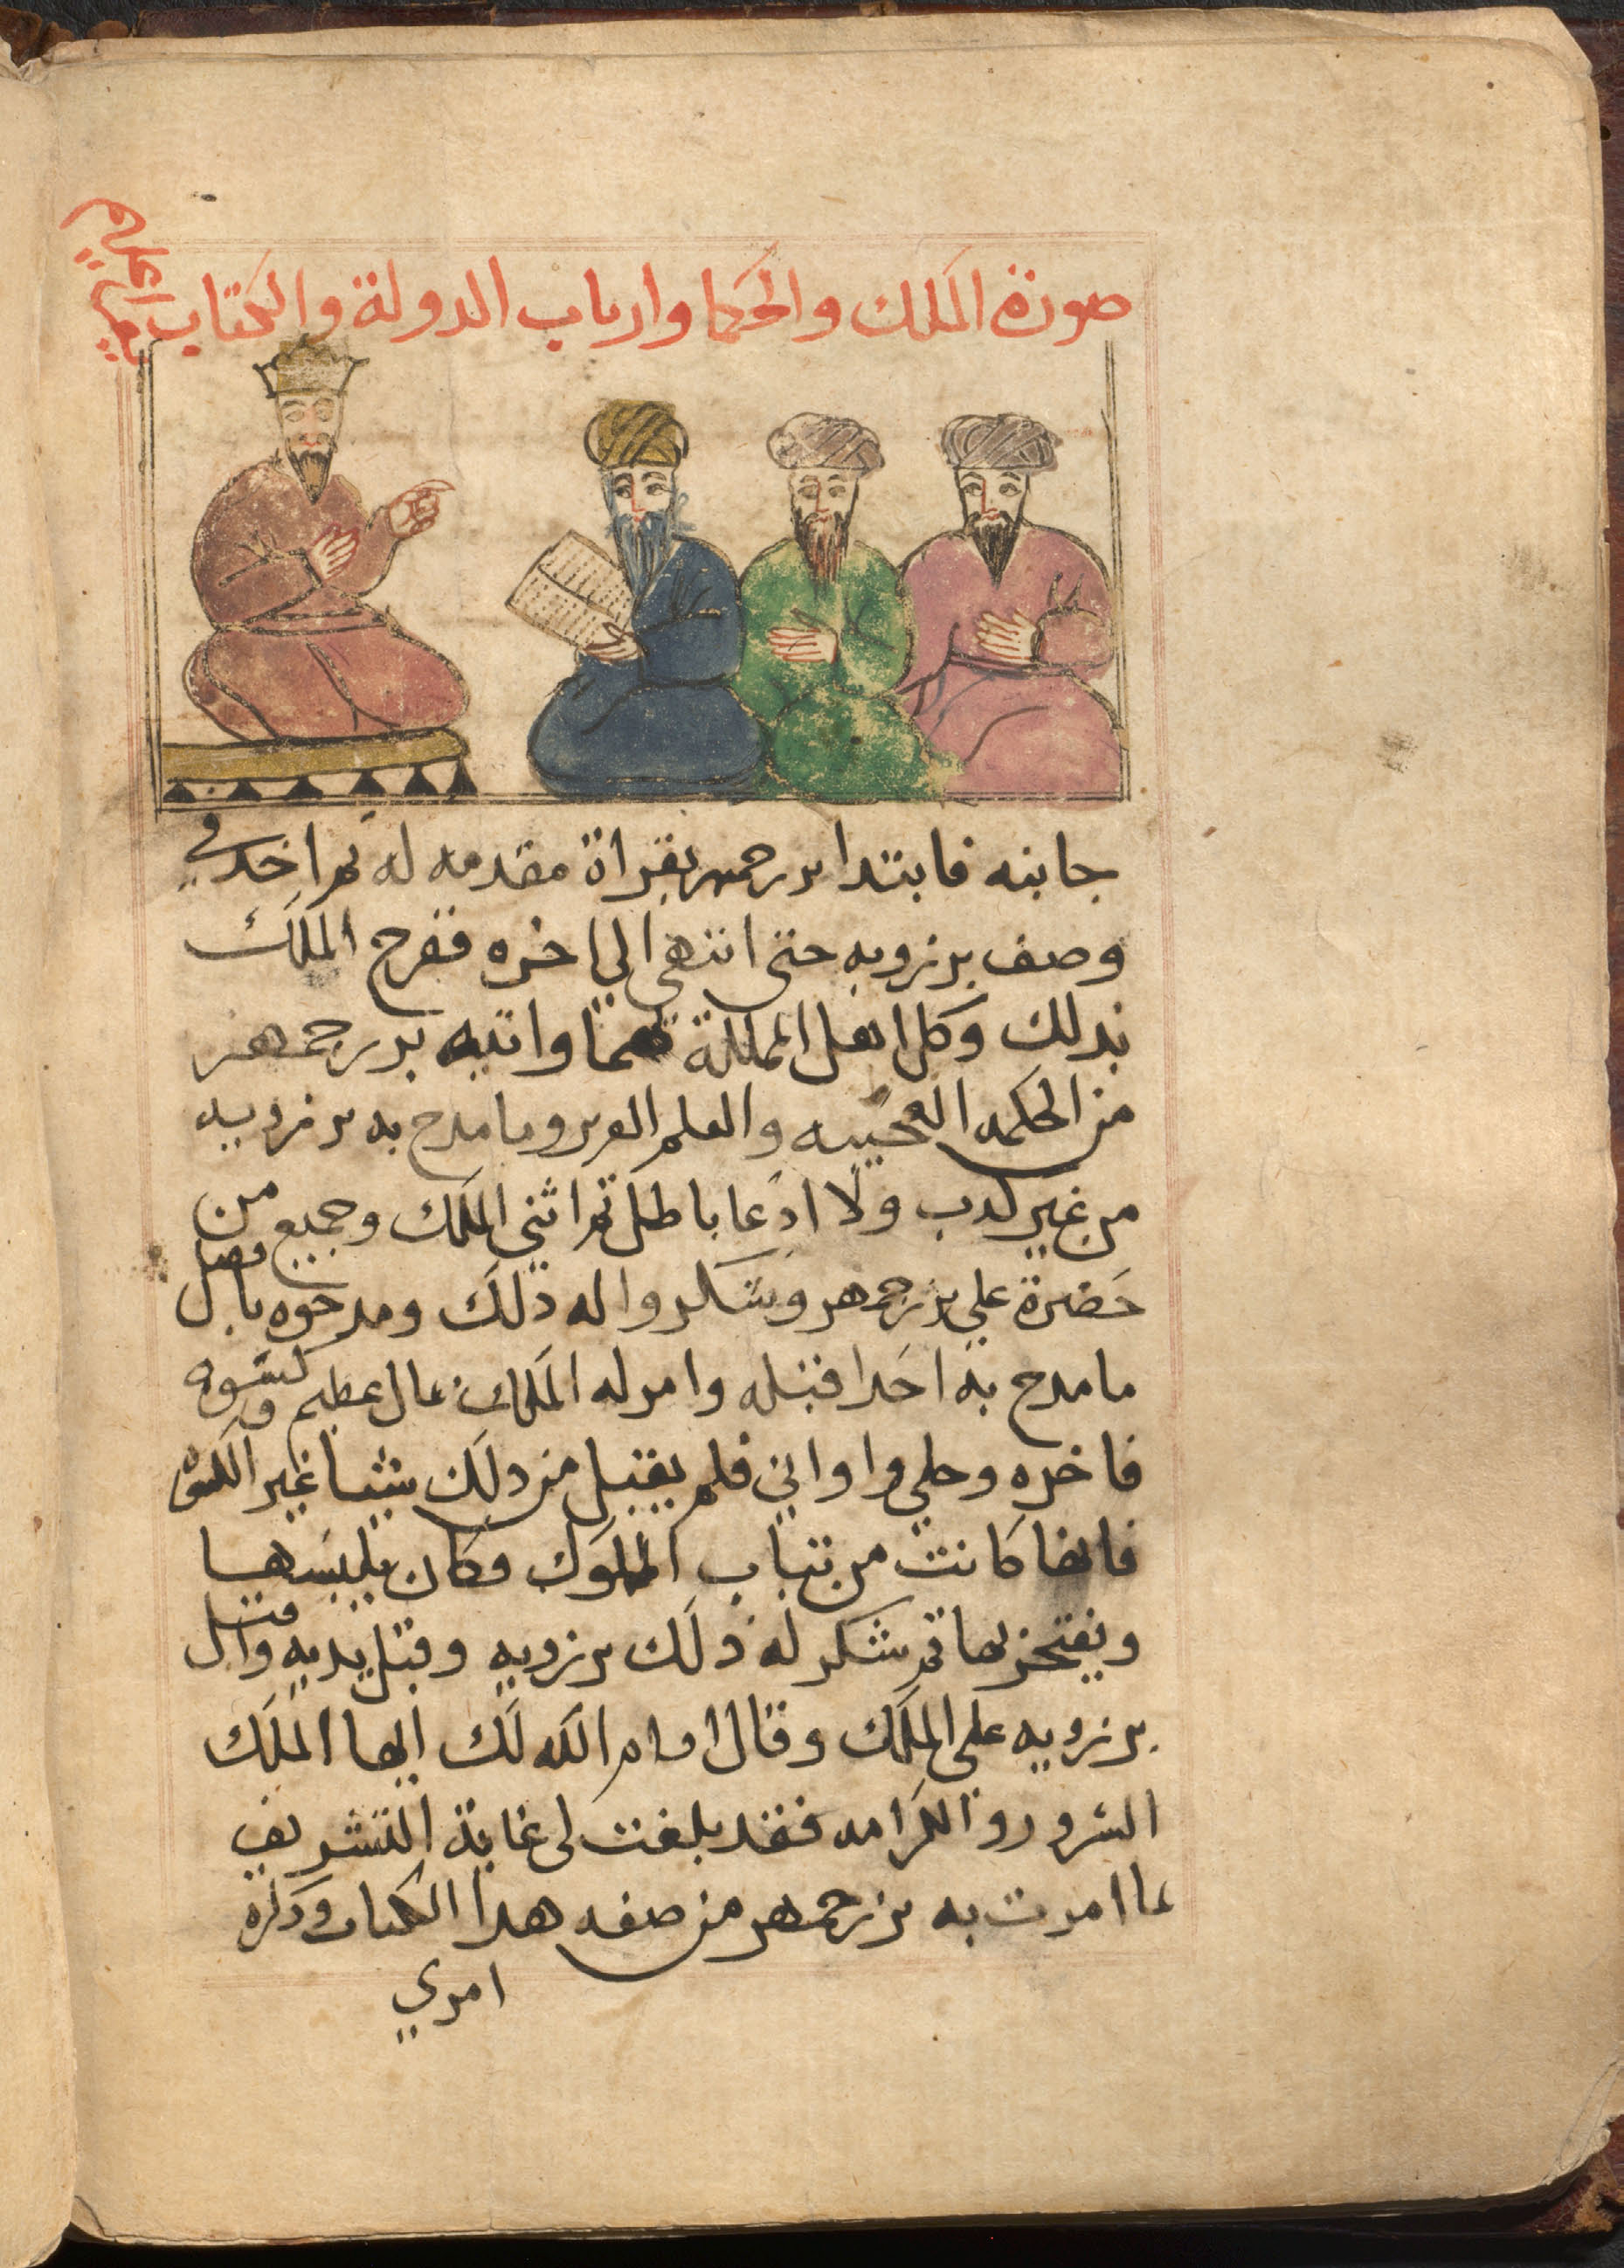 صورة الملك والحكما وارباب الدولة والكتاب يقرا عليهم
جانبه فابتدا بزرجمهر بقراة مقدمه له ثم اخد في
وصف برزويه حتى انتهى الي اخره ففرح الملك
بدلك وكل اهل المملكة بهما واتيه بزرجمهر
من الحكمه العجيبه والعلم الغزير وما مدح به برزويه
من غير كدب ولا ادعا باطل ثم اثني الملك وجميع من
حضرة علي بزرجمهر وشكروا له دلك ومدحوه بافضل
ما مدح به احدا قبله وامر له الملك بمال عظيم وكسوه
فاخره وحلي واواني فلم يقبل من دلك شيا غير الكسوه
فانها كانت من تياب الملوك وكان يلبسها
ويفتخر بها ثم شكر له ذلك برزويه وقبل يديه واقبل
برزويه على الملك وقال ادام الله لك ايها الملك
السرور والكرامه فقد بلغت لى غاية التشريف
بما امرت به بزرجمهر من صفه هدا الكتاب ودكره
امري